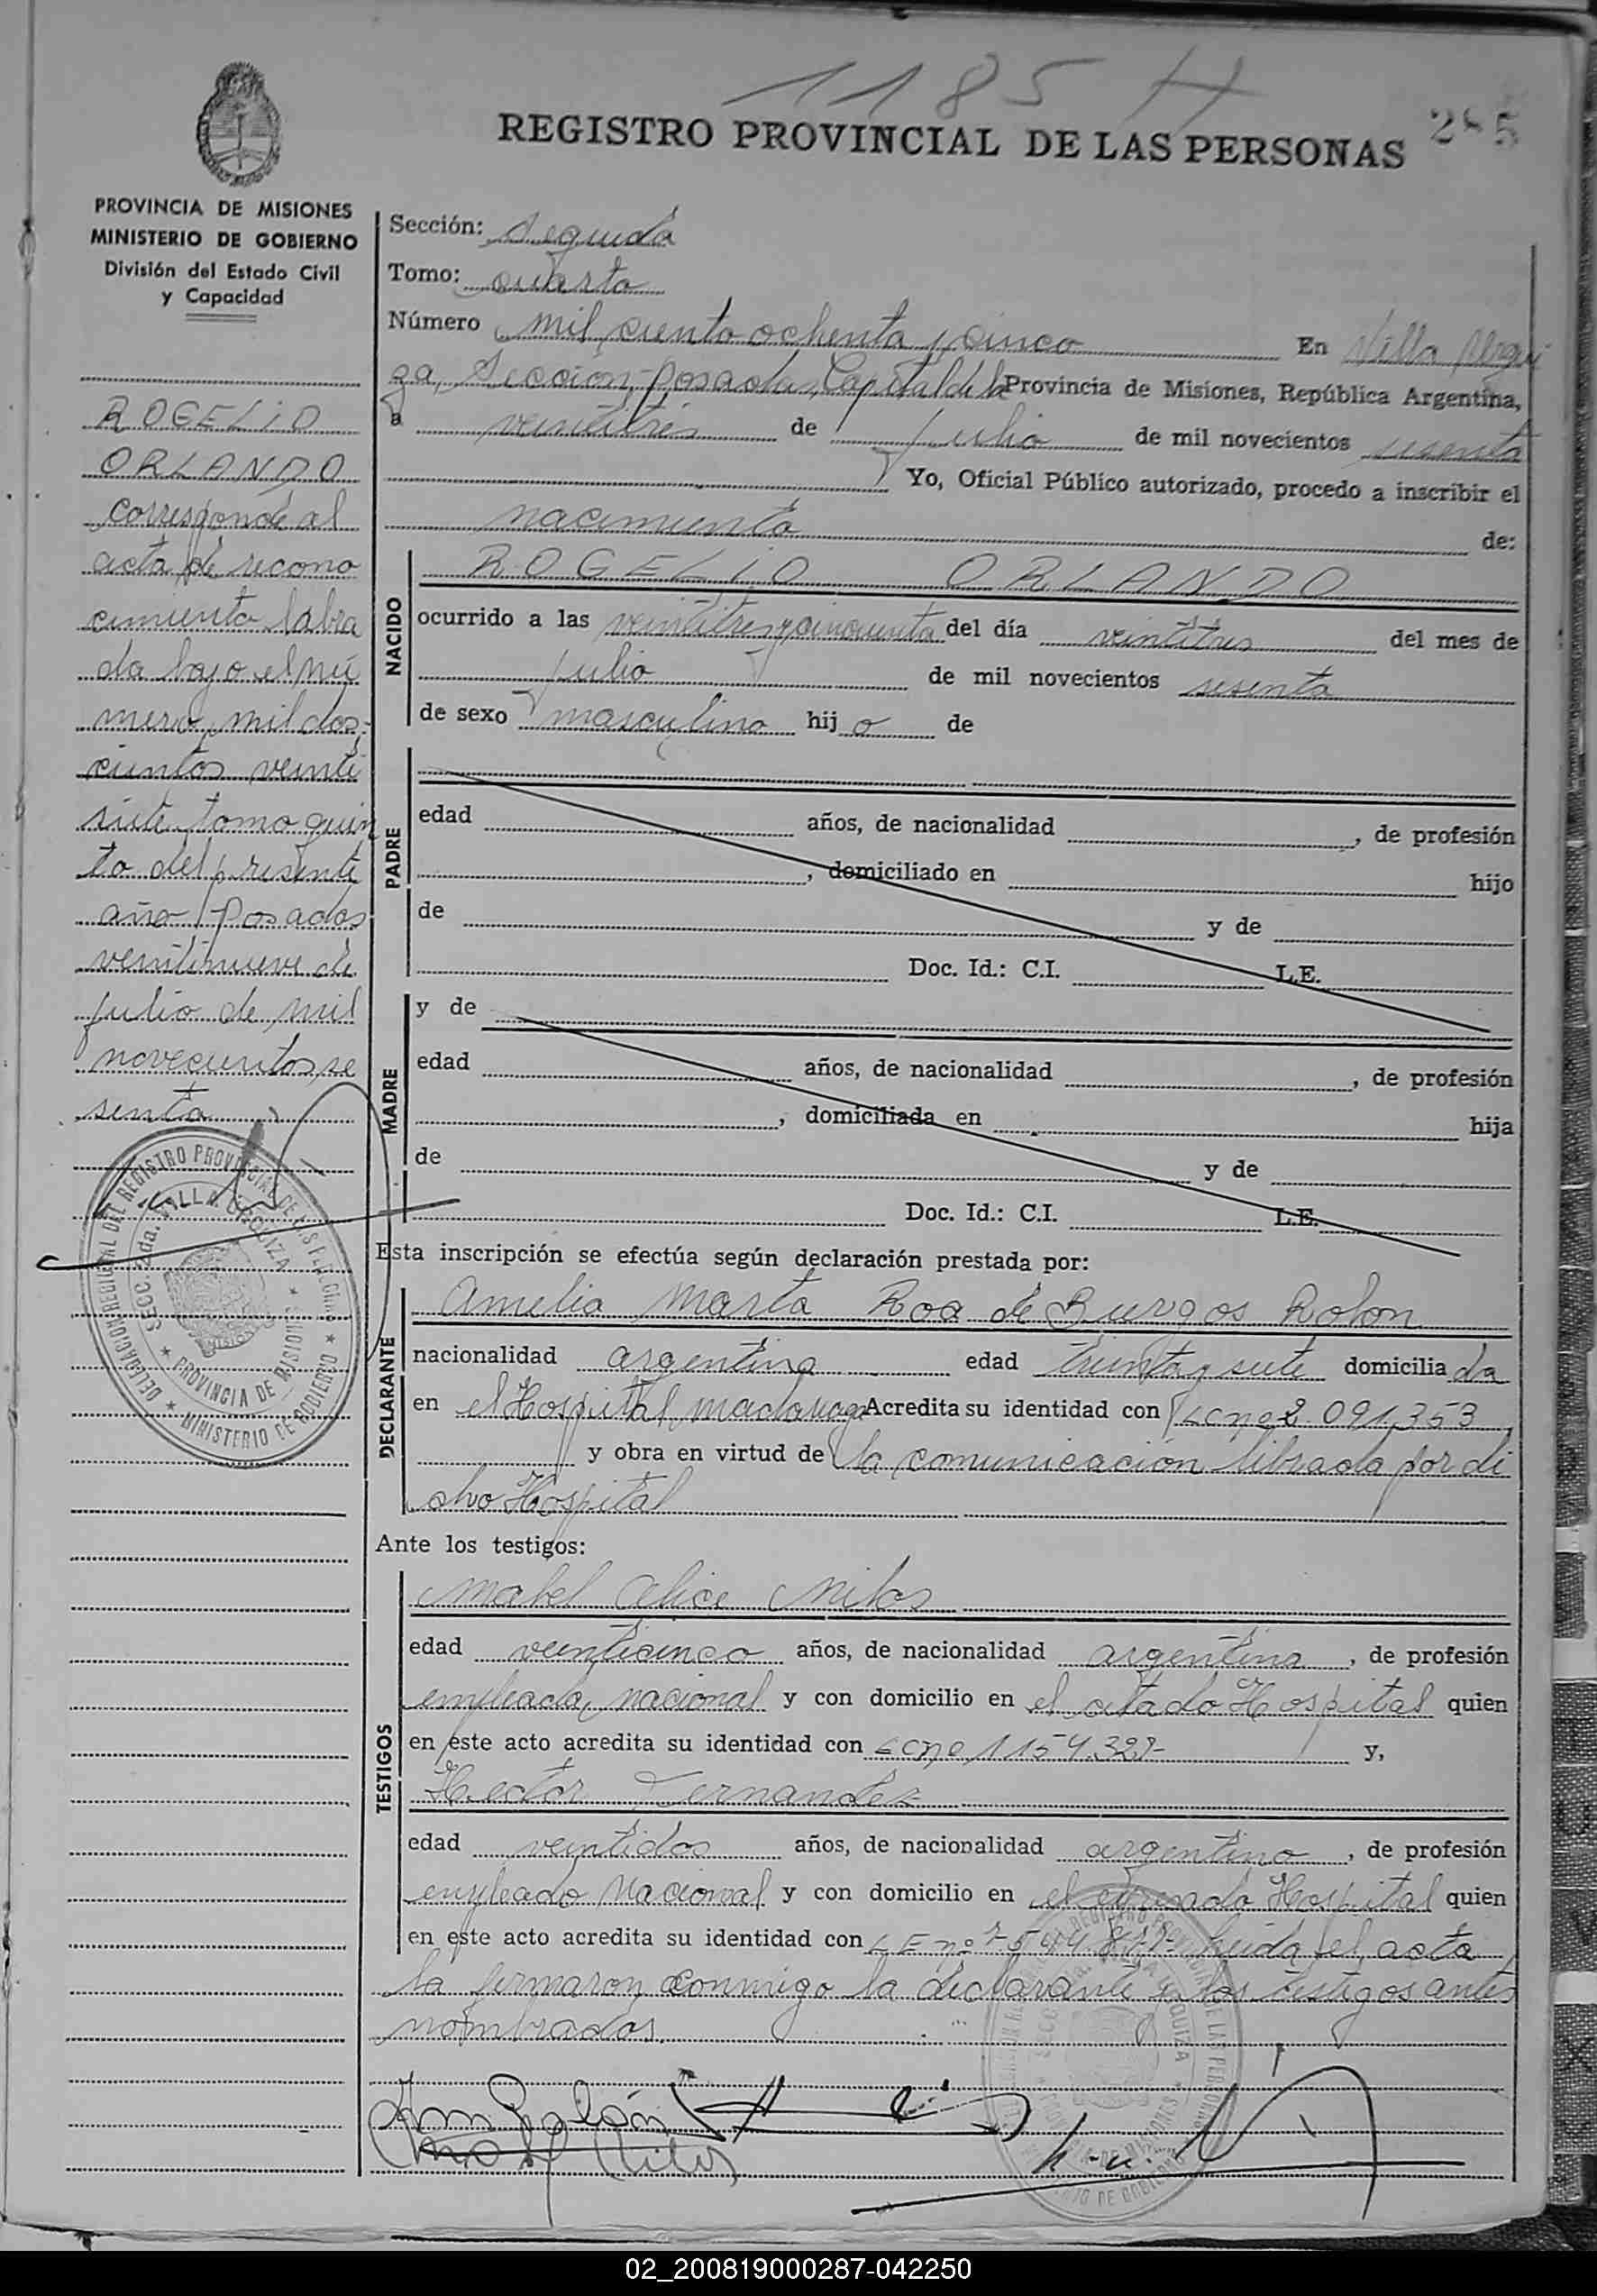 1185 H
285
REGISTRO PROVINCIAL DE LAS PERSONAS
PROVINCIA DE MISIONES
MINISTERIO DE GOBIERNO
División del Estado Civil
y Capacidad
ROGELIO
ORLANDO
corresponde al
acta de recono
cimiento labra
da bajo el nú
mero mil dos-
cientos veinti
siete tomo quin
to del presente
año Posadas
veintinueve de
julio de mil
novecientos se
senta
DELEGACION REGIONAL DEL REGISTRO PROVINCIAL DE LAS PERSONAS
SECC. 2da. VILLA URQUIZA
PROVINCIA DE MISIONES
MINISTERIO DE GOBIERNO
Sección: Segunda
Tomo: cuarto
Número mil ciento ochenta y cinco En Villa Urqui
za, Sección, Posadas, Capital de la Provincia de Misiones, República Argentina,
a veintitrés de julio de mil novecientos sesenta
Yo, Oficial Público autorizado, procedo a inscribir el
nacimiento de:
NACIDO
ROGELIO ORLANDO
ocurrido a las veintitres y cincuenta del día veintitres del mes de
julio de mil novecientos sesenta
de sexo masculino hijo de
PADRE
edad años, de nacionalidad , de profesión
, domiciliado en hijo
de y de
Doc. Id.: C.I. L.E.
MADRE
y de
edad años, de nacionalidad , de profesión
, domiciliada en hija
de y de
Doc. Id.: C.I. L.E.
Esta inscripción se efectúa según declaración prestada por:
DECLARANTE
Amelia Marta Roa de Burgos Rolon
nacionalidad argentina edad treinta y siete domiciliada
en el Hospital Madariaga Acredita su identidad con LC nº 2.091.353
y obra en virtud de la comunicación librada por di
cho Hospital
Ante los testigos:
TESTIGOS
Mabel Alice Milos
edad veinticinco años, de nacionalidad argentina, de profesión
empleada nacional y con domicilio en el citado Hospital quien
en este acto acredita su identidad con LC nº 1154.329- y,
Hector Fernandez
edad veintidos años, de nacionalidad argentino, de profesión
empleado Nacional y con domicilio en el Hospital quien
en este acto acredita su identidad con LE nº leida el acta
la firmaron conmigo la declarante y los testigos antes
nombrados.
02_200819000287-042250